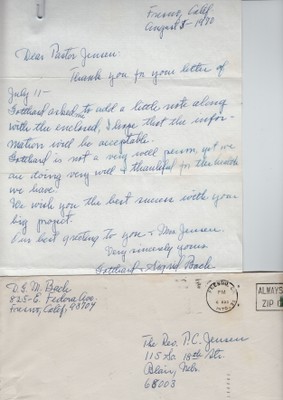 Fresno, Calif.
August 8 - 1970
Dear Pastor Jensen:
Thank you for your letter of
July 11 -
Gotthard asked me to add a little note along
with the enclosed, I hope that the infor-
mation will be acceptable.
Gotthard is not a very well person, yet we
are doing very well & thankful for the health
we have.
We wish you the best success with your
big project.
Our best greeting to you & Jensen.
Very sincerely yours.
Gotthard & Bach
D. G. M. Bach
825-E. Fedora Ave.
Fresno, Calif, 93704
FRESNO
PM
ALWAYS
ZIP
The Rev. P. C. Jensen
115 So. 18th Str.
Blair, Nebr.
68003